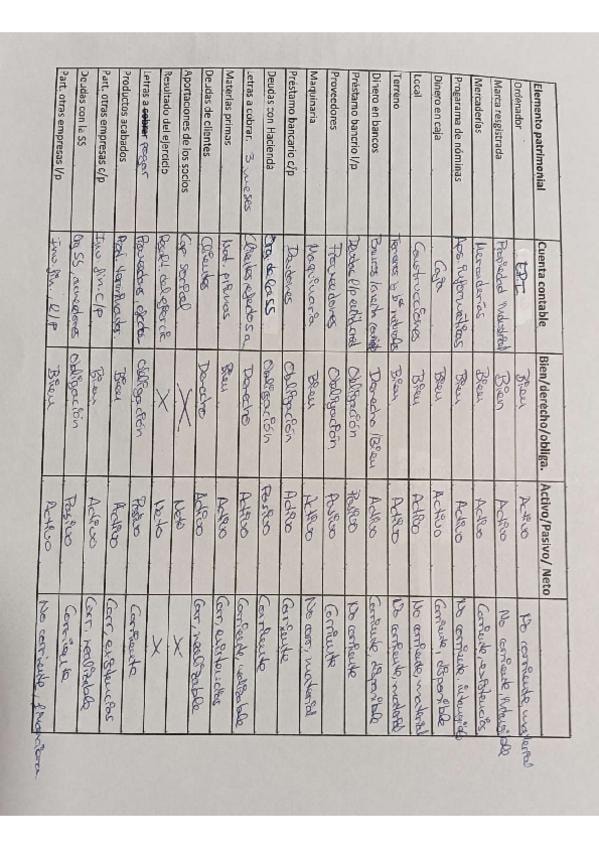 Elemento patrimonial Cuenta contable Bien/derecho/obliga. Activo/Pasivo/ Neto
Ordenador EPI Bien Activo No corriente, material
Marca registrada Propiedad Industrial Bien Activo No corriente, intangible
Mercaderías Mercaderías Bien Activo Corriente, existencias
Progarama de nóminas Apl. informáticas Bien Activo No corriente, intangible
Dinero en caja Caja Bien Activo Corriente, disponible
Local Construcciones Bien Activo No corriente, material
Terreno Terrenos y bº naturales Bien Activo No corriente, material
Dinero en bancos Bancos Derecho/Bien Activo Corriente, disponible
Préstamo bancrio l/p Obligación Pasivo No corriente
Proveedores Proveedores Obligación Pasivo Corriente
Maquinaria Maquinaria Bien Activo No corr, material
Préstamo bancario c/p Obligación Activo Corriente
Deudas con Hacienda Obligación Pasivo Corriente
Letras a cobrar. 3 meses Derecho Activo Corriente, realizable
Materias primas Mat. primas Bien Activo Corr, existencias
Deudas de clientes Clientes Derecho Activo Corr, realizable
Aportaciones de los socios Cap. social X Neto X
Resultado del ejercicio X Neto X
Letras a cobrar pagar Obligación Pasivo Corriente
Productos acabados Prod. terminados Bien Activo Corr, existencias
Part. otras empresas c/p Inv. fin. c/p Bien Activo Corr, realizable
Deudas con la SS Org. SS, acreedores Obligación Pasivo Corriente
Part. otras empresas l/p Inv. fin. l/p Bien Activo No corriente, financiera